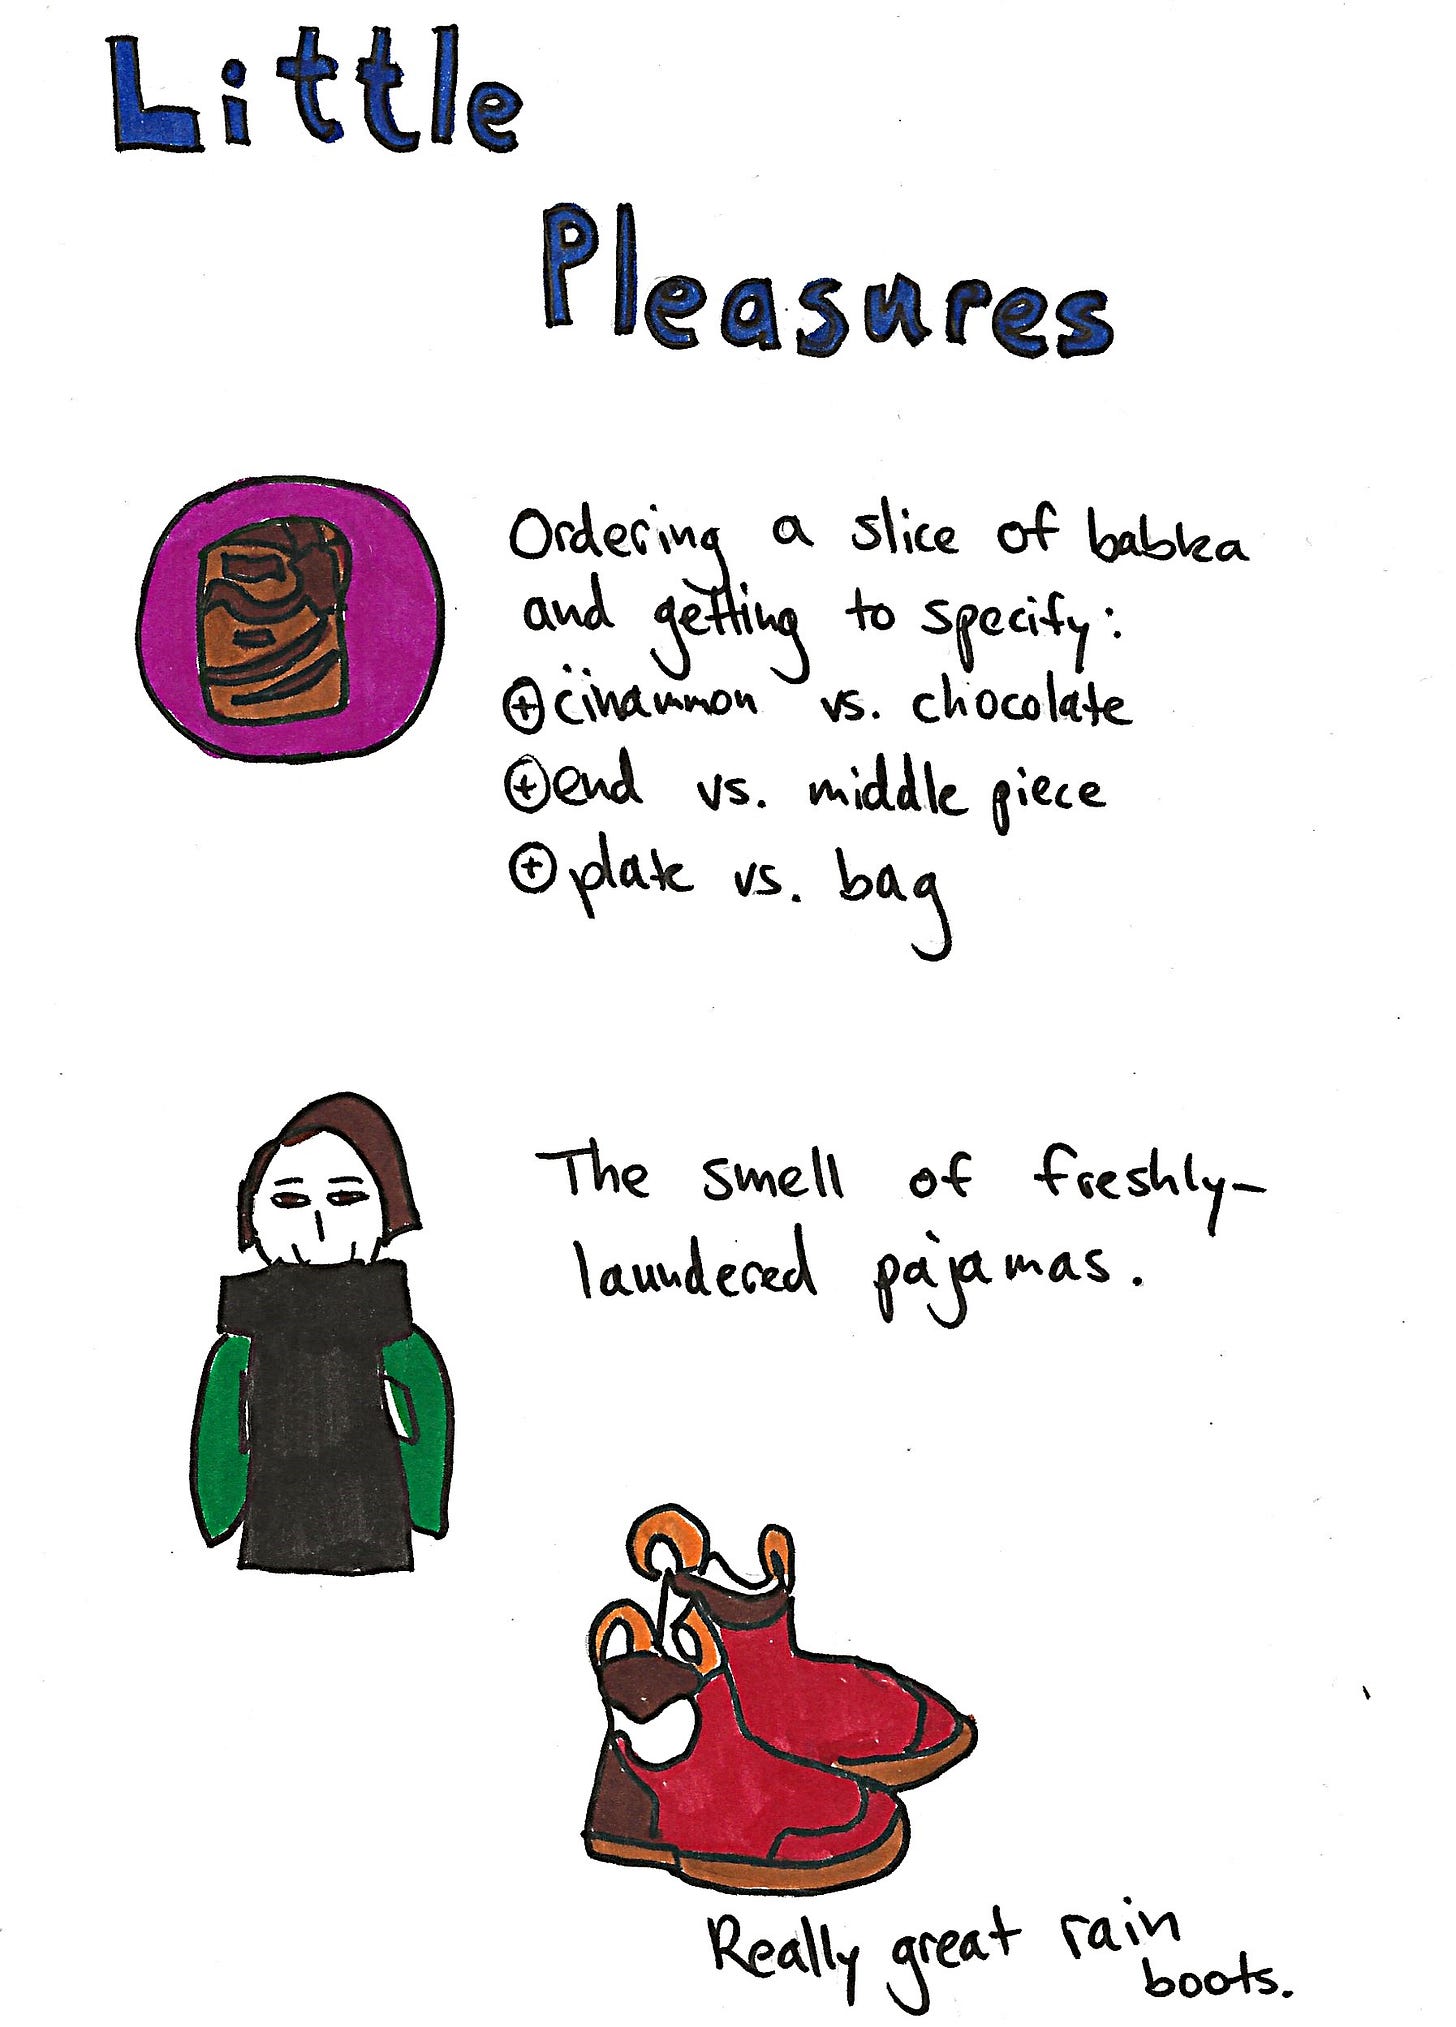 Little
Pleasures
Ordering a slice of babka
and getting to specify:
⊕ cinammon vs. chocolate
⊕ end vs. middle piece
⊕ plate vs. bag
The smell of freshly-
laundered pajamas.
Really great rain
boots.